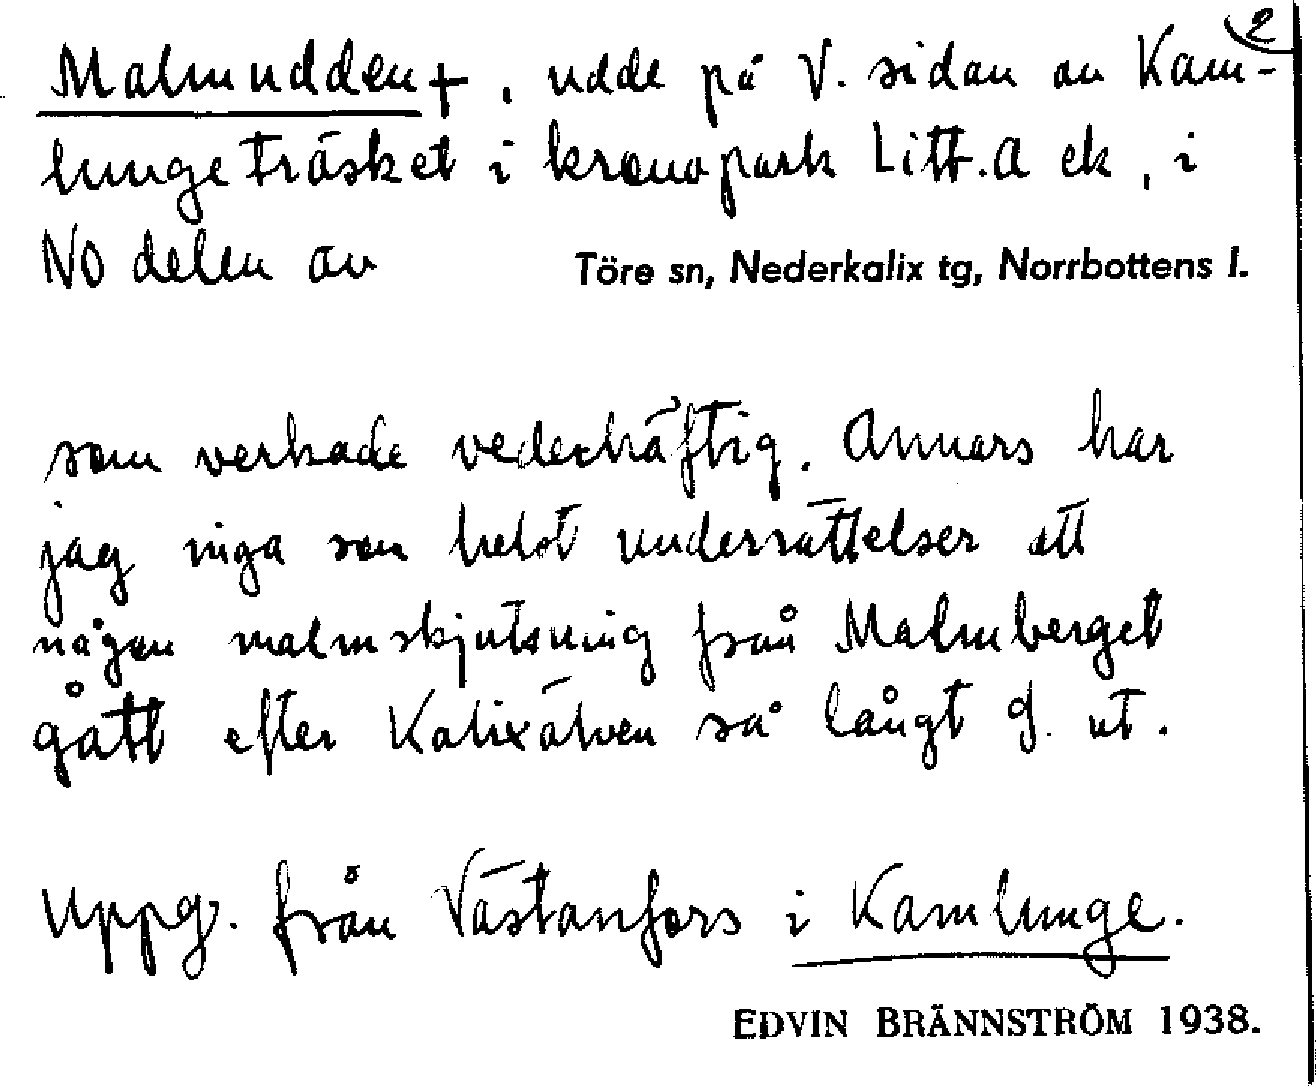 2
Malmudden +, udde på V. sidan av Kam-
lungeträsket i kronopark Litt. A ek, i
NO delen av Töre sn, Nederkalix tg, Norrbottens l.
som verkade vederhäftig. Annars har
jag inga som helst underrättelser att
någon malmskjutsning från Malmberget
gått efter Kalixälven så långt ut.
Uppg. från Västanfors i Kamlunge.
EDVIN BRÄNNSTRÖM 1938.